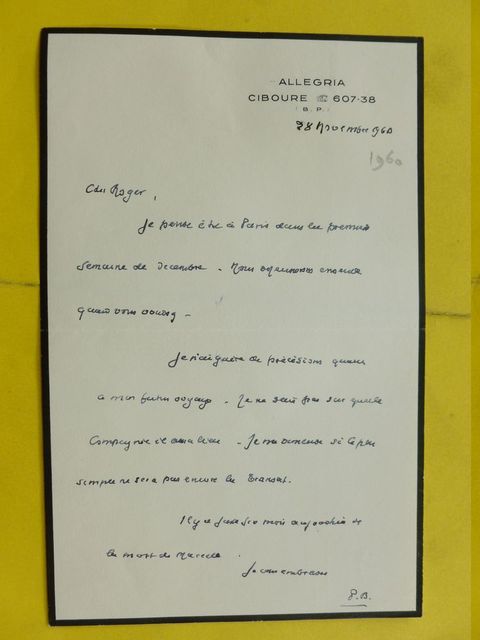 ALLEGRIA
CIBOURE ☏ 607-38
(B. P.)
28 Novembre 1960
1960
Cher Roger,
Je pense être à Paris dans la première
semaine de Décembre. Nous
quand vous
Je n'ai guère de précisions quant
à mon futur voyage. Je ne sais pas sur quelle
Compagnie il aura lieu. Je me demande si le plus
simple ne sera pas encore la Transat.
Il y a juste six mois aujourd'hui de
la mort de Marcelle.
Je vous embrasse
P.B.